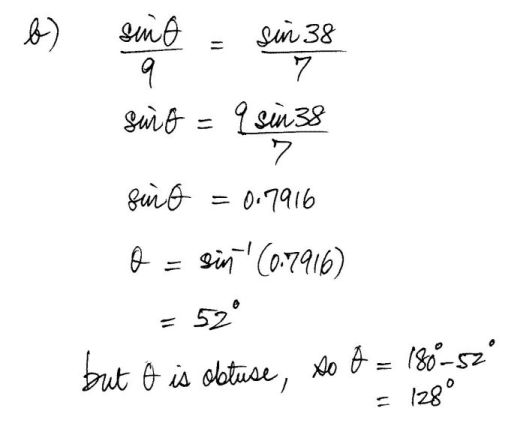 b) sinθ/9 = sin 38/7
sinθ = 9 sin38/7
sinθ = 0.7916
θ = sin⁻¹(0.7916)
= 52°
but θ is obtuse, so θ = 180°-52°
= 128°